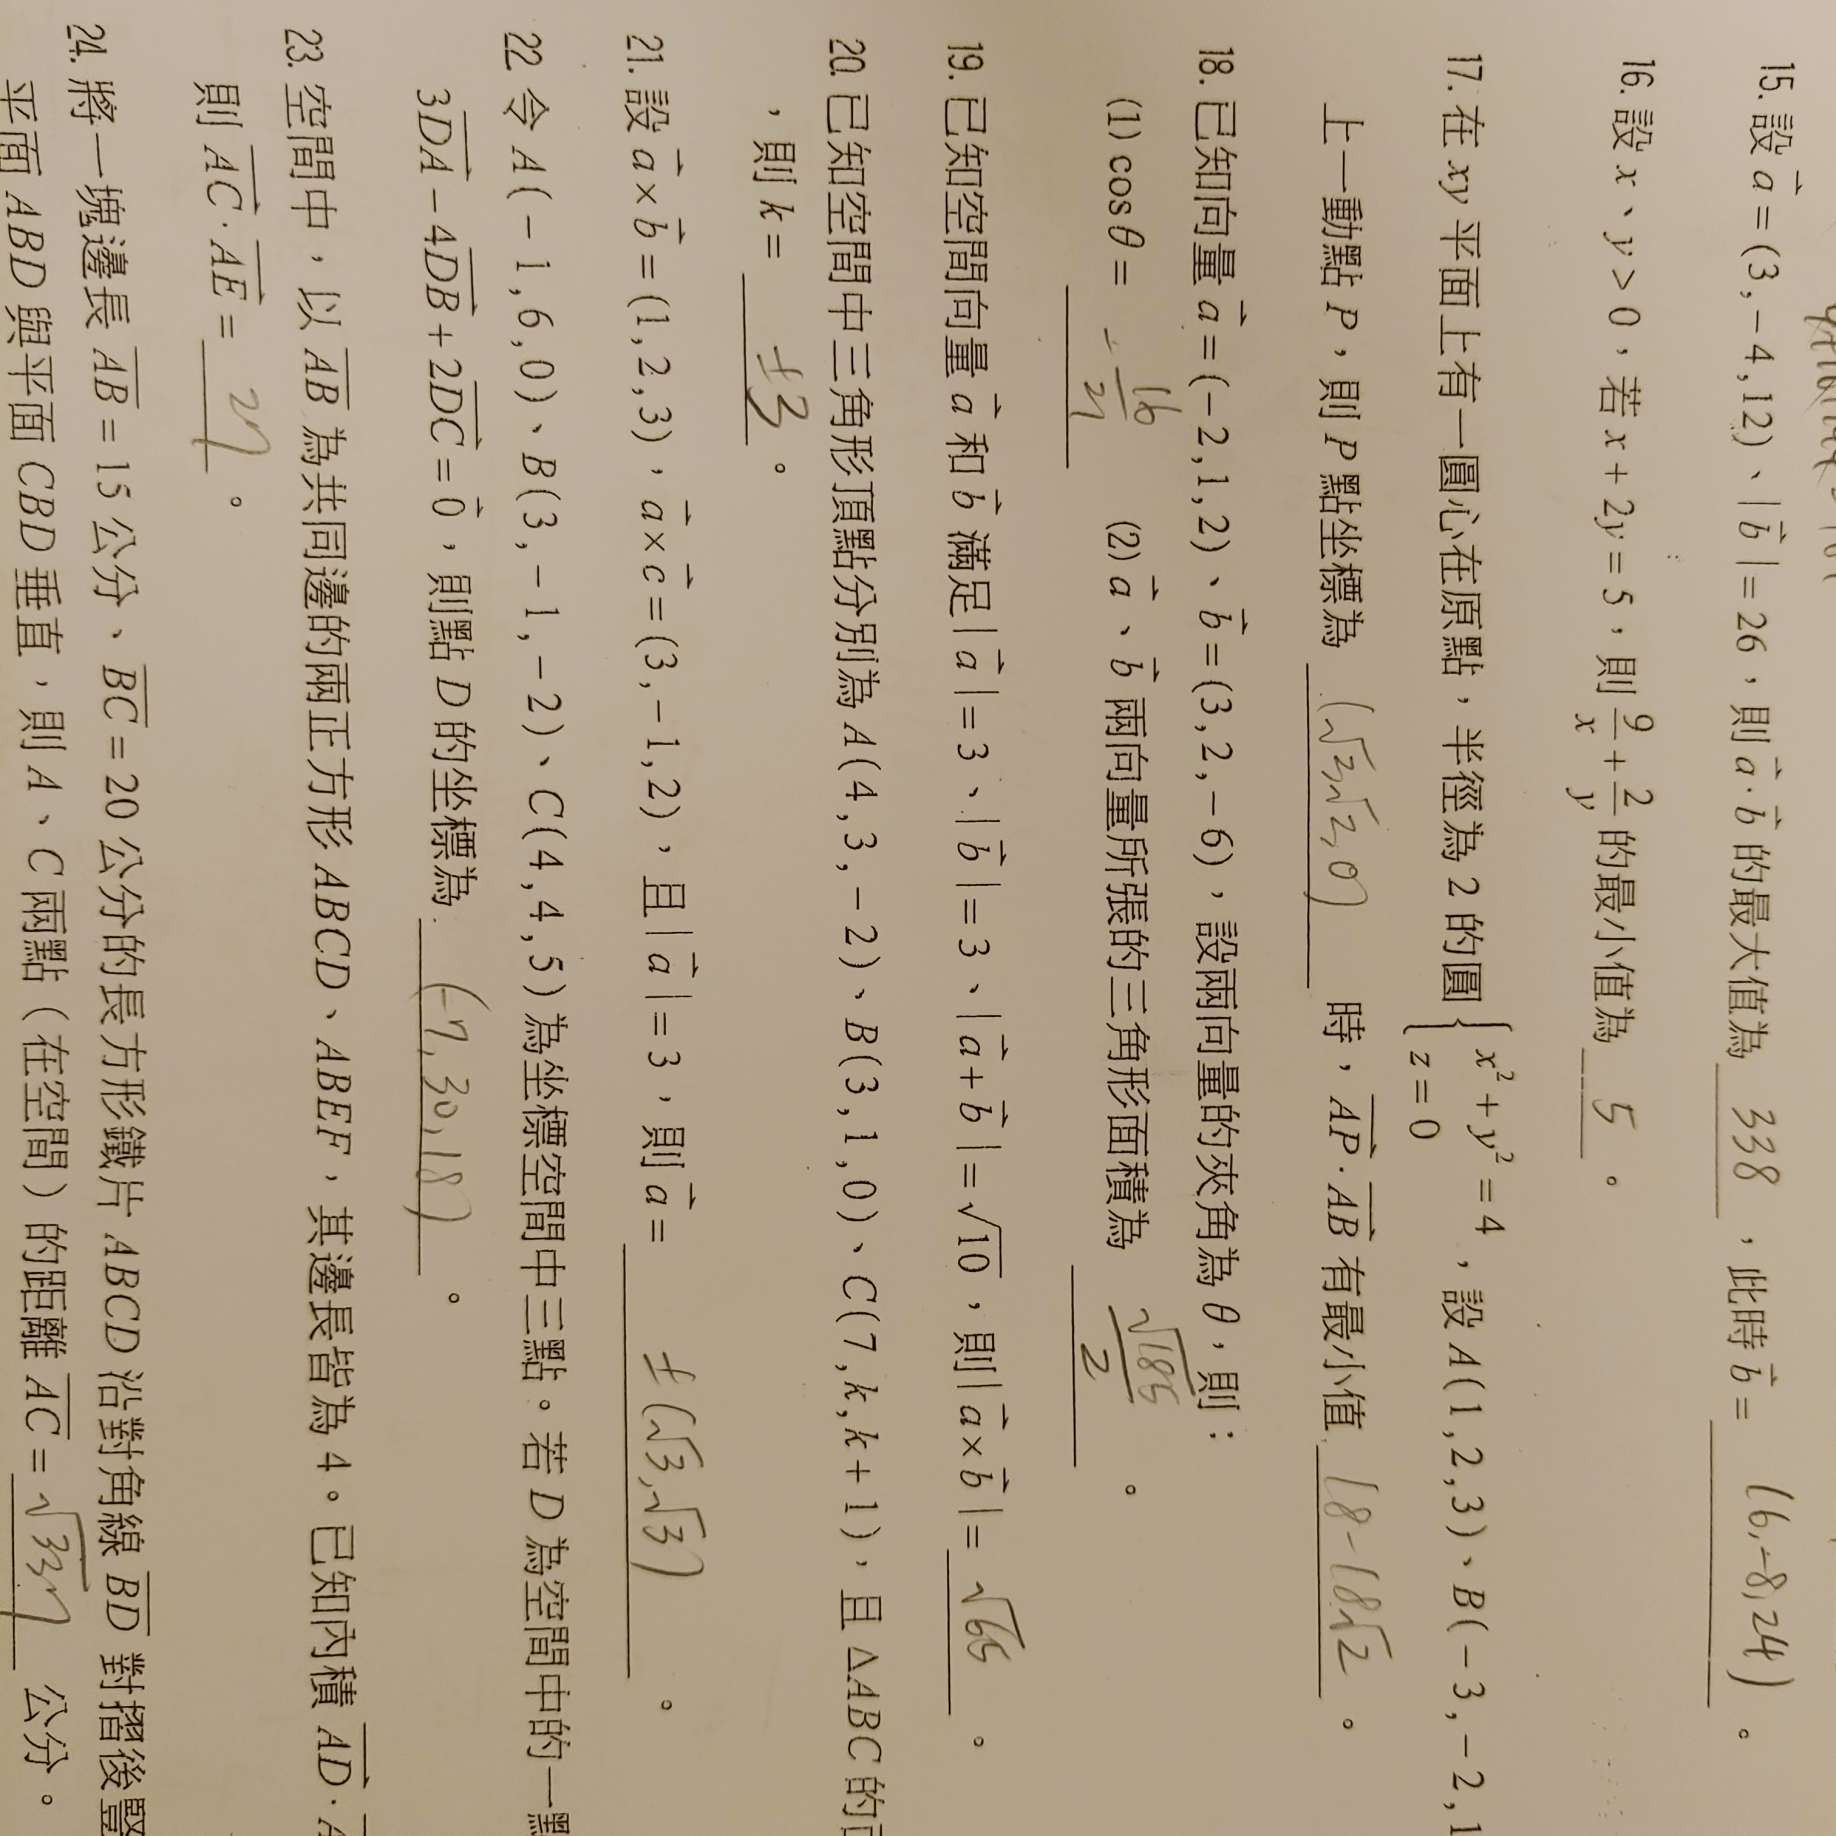 15. 設 a⃗ = (3, −4, 12)、|b⃗| = 26，則 a⃗·b⃗ 的最大值為 338 ，此時 b⃗ = (6, −8, 24) 。
16. 設 x、y > 0，若 x + 2y = 5，則 9/x + 2/y 的最小值為 5 。
17. 在 xy 平面上有一圓心在原點，半徑為 2 的圓 { x² + y² = 4, z = 0 ，設 A(1, 2, 3)、B(−3, −2, 1
上一動點 P，則 P 點坐標為 (√2, √2, 0) 時，AP⃗·AB⃗ 有最小值 18 − 18√2 。
18. 已知向量 a⃗ = (−2, 1, 2)、b⃗ = (3, 2, −6)，設兩向量的夾角為 θ，則：
(1) cos θ = −16/21 (2) a⃗、b⃗ 兩向量所張的三角形面積為 √185/2 。
19. 已知空間向量 a⃗ 和 b⃗ 滿足 |a⃗| = 3、|b⃗| = 3、|a⃗ + b⃗| = √10，則 |a⃗ × b⃗| = √65 。
20. 已知空間中三角形頂點分別為 A(4, 3, −2)、B(3, 1, 0)、C(7, k, k + 1)，且 △ABC 的
，則 k = ±3 。
21. 設 a⃗ × b⃗ = (1, 2, 3)，a⃗ × c⃗ = (3, −1, 2)，且 |a⃗| = 3，則 a⃗ = ±(√3, √3) 。
22 令 A(−1, 6, 0)、B(3, −1, −2)、C(4, 4, 5) 為坐標空間中三點。若 D 為空間中的一點
3DA⃗ − 4DB⃗ + 2DC⃗ = 0⃗，則點 D 的坐標為 (−7, 30, 18) 。
23. 空間中，以 AB 為共同邊的兩正方形 ABCD、ABEF，其邊長皆為 4。已知內積 AD⃗·
則 AC⃗·AE⃗ = 27 。
24. 將一塊邊長 AB = 15 公分、BC = 20 公分的長方形鐵片 ABCD 沿對角線 BD 對摺後豎
平面 ABD 與平面 CBD 垂直，則 A、C 兩點（在空間）的距離 AC = √337 公分。